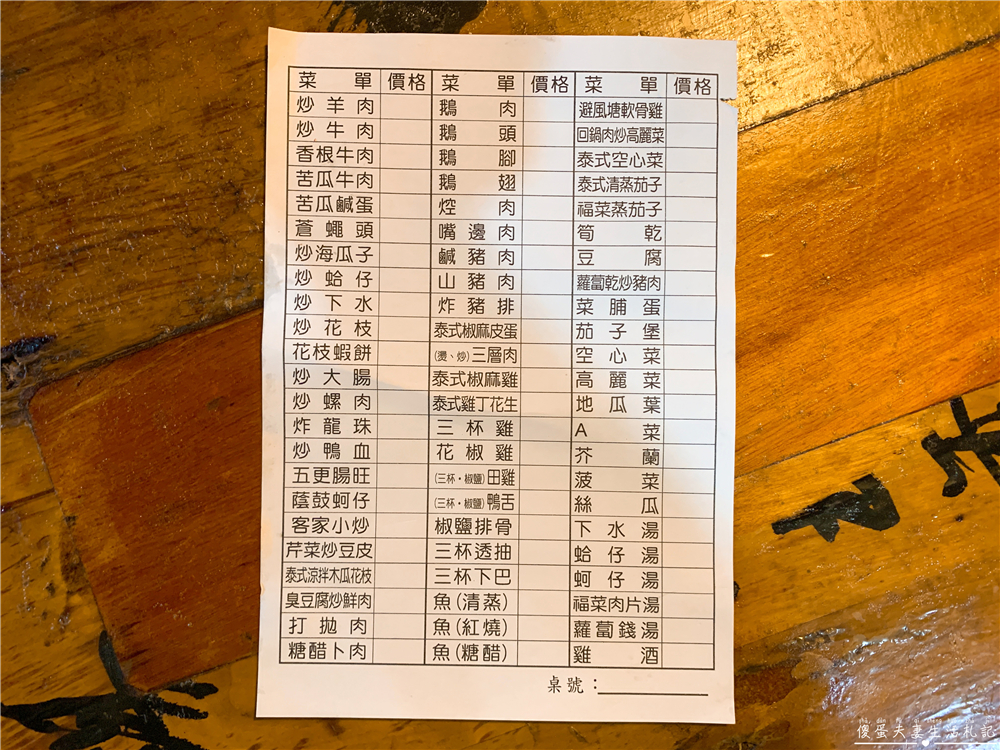 菜單 價格 菜單 價格 菜單 價格
炒羊肉 鵝肉 避風塘軟骨雞
炒牛肉 鵝頭 回鍋肉炒高麗菜
香根牛肉 鵝腳 泰式空心菜
苦瓜牛肉 鵝翅 泰式清蒸茄子
苦瓜鹹蛋 焢肉 福菜蒸茄子
蒼蠅頭 嘴邊肉 筍乾
炒海瓜子 鹹豬肉 豆腐
炒蛤仔 山豬肉 蘿蔔乾炒豬肉
炒下水 炸豬排 菜脯蛋
炒花枝 泰式椒麻皮蛋 茄子堡
花枝蝦餅 (燙、炒)三層肉 空心菜
炒大腸 泰式椒麻雞 高麗菜
炒螺肉 泰式雞丁花生 地瓜葉
炸龍珠 三杯雞 A菜
炒鴨血 花椒雞 芥蘭
五更腸旺 (三杯・椒鹽)田雞 菠菜
蔭鼓蚵仔 (三杯・椒鹽)鴨舌 絲瓜
客家小炒 椒鹽排骨 下水湯
芹菜炒豆皮 三杯透抽 蛤仔湯
泰式涼拌木瓜花枝 三杯下巴 蚵仔湯
臭豆腐炒鮮肉 魚(清蒸) 福菜肉片湯
打拋肉 魚(紅燒) 蘿蔔錢湯
糖醋卜肉 魚(糖醋) 雞酒
桌號：
傻蛋夫妻生活札記